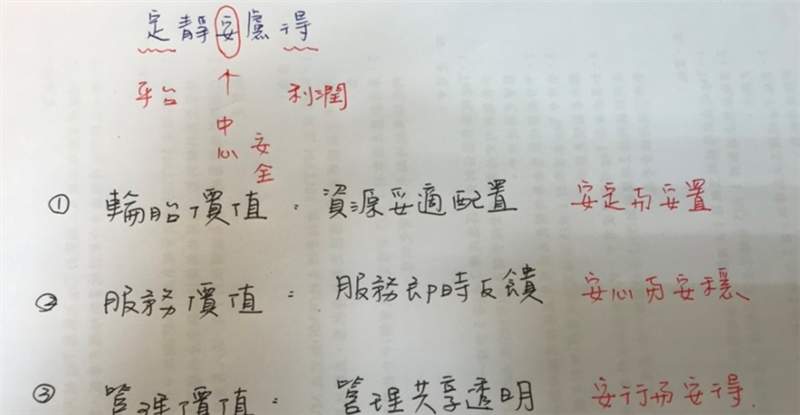 定靜安慮得
平台 ↑ 利潤
中心 安全
① 輪胎價值：資源妥適配置 安定而安置
② 服務價值：服務即時反饋 安心而安穩
③ 管理價值：管理共享透明 安行而安得